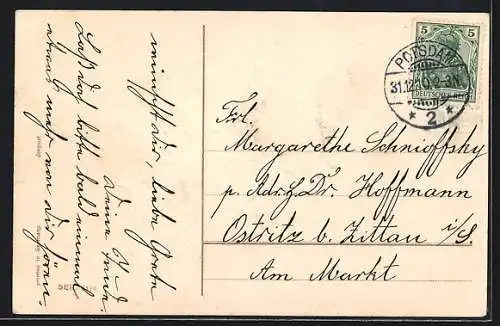 wünscht dir, liebe Grete
Deine
Laß doch bitte bald einmal
etwas mehr von dir hören.
Frl.
Margarethe Schnioffsky
p. Adr. H. Dr. Hoffmann
Ostritz b. Zittau i/S.
Am Markt
5 5
DEUTSCHES REICH
POTSDAM
31.12.10. 2-3N.
* 2 *